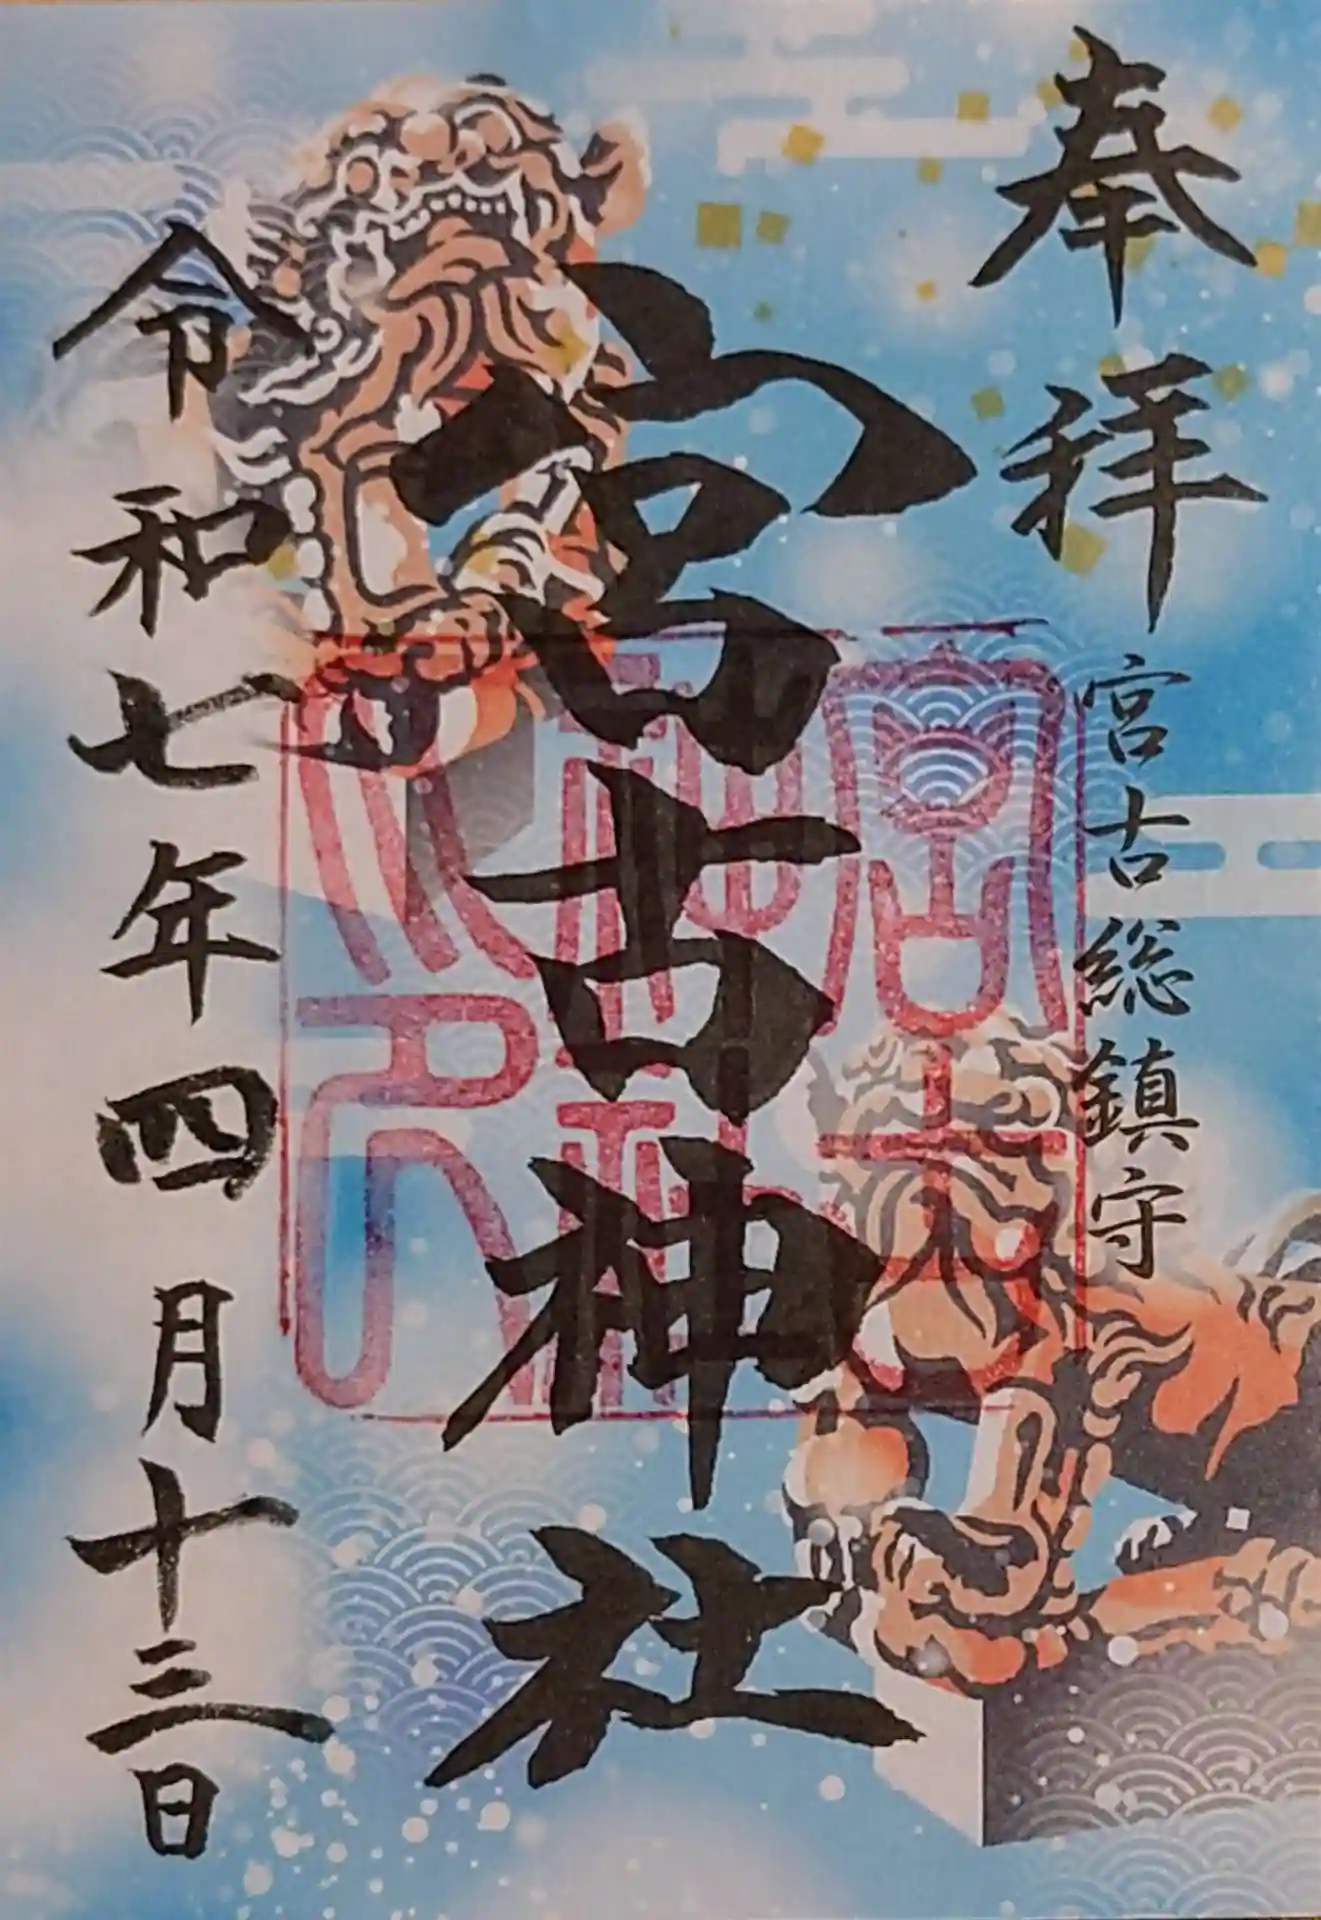 奉拝
宮古総鎮守
宮古神社
令和七年四月十三日